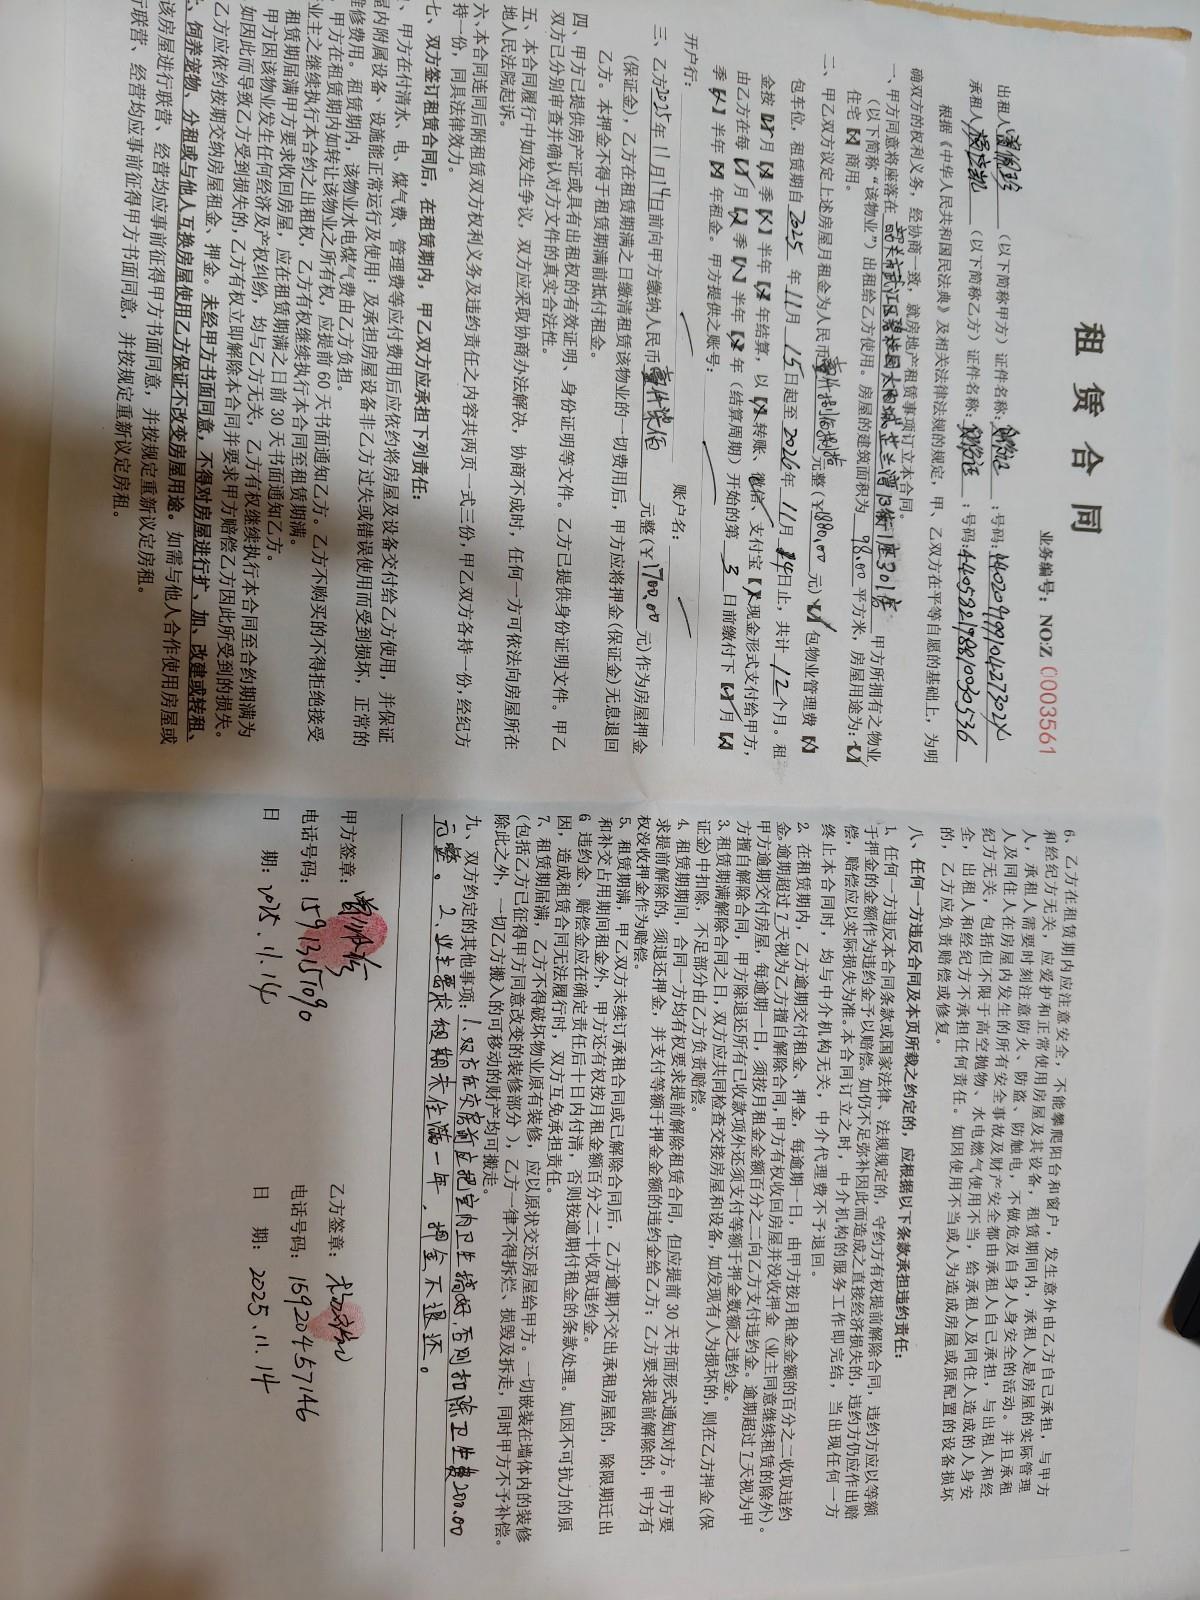 租赁合同
业务编号：NO:Z 0003561
出租人 （以下简称甲方）证件名称： ；号码：
承租人 （以下简称乙方）证件名称：身份证；号码：
根据《中华人民共和国民法典》及相关法律法规的规定，甲、乙双方在平等自愿的基础上，为明
确双方的权利义务，经协商一致，就房地产租赁事项订立本合同。
一、甲方同意将座落在 韶关市武江区碧桂园太阳城芷兰湾13街1座301房 甲方所拥有之物业
（以下简称“该物业”）出租给乙方使用。房屋的建筑面积为 98.00 平方米，房屋用途为：【√】
住宅【×】商用。
二、甲乙双方议定上述房屋月租金为人民币 元整（¥ 元）【√】包物业管理费【×】
包车位，租赁期自2025年11月15日起至2026年11月14日止，共计12个月。租
金按【√】月【×】季【×】半年【×】年结算，以【×】转账、微信、支付宝【×】现金形式支付给甲方，
由乙方在每【√】月【×】季【×】半年【×】年（结算周期）开始的第 3 日前缴付下【√】月【×】
季【×】半年【×】年租金。甲方提供之账号：
开户行： 账户名：
三、乙方2025年11月14日前向甲方缴纳人民币 壹仟柒佰 元整（¥1700.00元）作为房屋押金
（保证金），乙方在租赁期满之日缴清租赁该物业的一切费用后，甲方应将押金（保证金）无息退回
乙方。本押金不得于租赁期满前抵付租金。
四、甲方已提供房产证或具有出租权的有效证明、身份证明等文件。乙方已提供身份证明文件。甲乙
双方已分别审查并确认对方文件的真实合法性。
五、本合同履行中如发生争议，双方应采取协商办法解决，协商不成时，任何一方可依法向房屋所在
地人民法院起诉。
六、本合同连同后附租赁双方权利义务及违约责任之内容共两页一式三份，甲乙双方各持一份，经纪方
持一份，同具法律效力。
七、双方签订租赁合同后，在租赁期内，甲乙双方应承担下列责任：
、甲方在付清水、电、煤气费、管理费等应付费用后应依约将房屋及设备交付给乙方使用，并保证
室内附属设备、设施能正常运行及使用；及承担房屋设备非乙方过失或错误使用而受到损坏，正常的
维修费用。租赁期内，该物业水电煤气费由乙方负担。
、甲方在租赁期内如转让该物业之所有权，应提前60天书面通知乙方。乙方不购买的不得拒绝接受
业主之继续执行本合约之出租权，乙方有权继续执行本合同至租赁期满。
租赁期届满甲方要求收回房屋，应在租赁期满之日前30天书面通知乙方。
甲方因该物业发生任何经济及产权纠纷，均与乙方无关，乙方有权继续执行本合同至合约期满为
如因此而导致乙方受到损失的，乙方有权立即解除本合同并要求甲方赔偿乙方因此所受到的损失。
乙方应依约按期交纳房屋租金、押金。未经甲方书面同意，不得对房屋进行扩、加、改建或转租、
、饲养宠物、分租或与他人互换房屋使用乙方保证不改变房屋用途。如需与他人合作使用房屋或
该房屋进行联营、经营均应事前征得甲方书面同意，并按规定重新议定房租。
行联营、经营均应事前征得甲方书面同意，并按规定重新议定房租。
6、乙方在租赁期内应注意安全，不能攀爬阳台和窗户，发生意外由乙方自己承担，与甲方
和经纪方无关，应爱护和正常使用房屋及其设备，租赁期间内，承租人是房屋的实际管理
人，承租人需要时刻注意防火、防盗、防触电，不做危及自身人身安全的活动。并且承租
人及同住人在房屋内发生的所有安全事故及财产安全都由承租人自己承担，与出租人和经
纪方无关，包括但不限于高空抛物、水电燃气使用不当，给承租人及同住人造成的人身安
全，出租人和经纪方不承担任何责任。如因使用不当或人为造成房屋或原配置的设备损坏
的，乙方应负责赔偿或修复。
八、任何一方违反合同及本页所载之约定的，应根据以下条款承担违约责任：
1、任何一方违反本合同条款或国家法律、法规规定的，守约方有权提前解除合同，违约方应以等额
于押金的金额作为违约金予以赔偿。如仍不足弥补因此而造成之直接经济损失的，违约方仍应作出赔
偿，赔偿应以实际损失为准。本合同订立之时，中介机构的服务工作即完结，当出现任何一方
终止本合同时，均与中介机构无关，中介代理费不予退回。
2、在租赁期内，乙方逾期交付租金、押金，每逾期一日，由甲方按月租金金额的百分之二收取违约
金。逾期超过7天视为乙方擅自解除合同，甲方有权收回房屋并没收押金（业主同意继续租赁的除外）。
甲方逾期交付房屋，每逾期一日，须按月租金金额百分之二向乙方支付违约金。逾期超过7天视为甲
方擅自解除合同，甲方除退还所有已收款项外还须支付等额于押金数额之违约金。
3、租赁期满解除合同之日，双方应共同检查交接房屋和设备，如发现有人为损坏的，则在乙方押金（保
证金）中扣除，不足部分由乙方负责赔偿。
4、租赁期期间，合同一方均有权要求提前解除租赁合同，但应提前30天书面形式通知对方。甲方要
求提前解除的，须退还押金，并支付等额于押金金额的违约金给乙方；乙方要求提前解除的，甲方有
权没收押金作为赔偿。
5、租赁期满，甲乙双方未续订承租合同或已解除合同后，乙方逾期不交出承租房屋的，除限期迁出
和补交占用期间租金外，甲方还有权按月租金额百分之二十收取违约金。
6 违约金、赔偿金应在确定责任后十日内付清，否则按逾期付租金的条款处理。如因不可抗力的原
因，造成租赁合同无法履行时，双方互免承担责任。
7、租赁期届满，乙方不得破坏物业原有装修，应以原状交还房屋给甲方。一切嵌装在墙体内的装修
（包括乙方已征得甲方同意改变的装修部分），乙方一律不得拆烂、损毁及拆走，同时甲方不予补偿。
除此之外，一切乙方搬入的可移动的财产均可搬走。
九、双方约定的其他事项：1.双方在交房前应把室内卫生搞好，否则扣除卫生费200.00
元整。2.业主要求租期未住满一年，押金不退还。
甲方签章： 乙方签章：
电话号码：15913151090 电话号码：15920457146
日 期：2025.11.14 日 期：2025.11.14